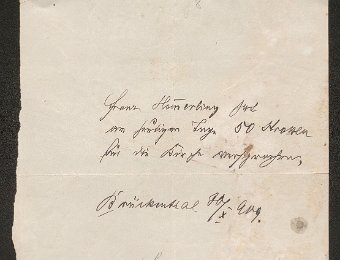 Franz Hammerling hat
am heutigen Tage 50 Kronen
für die Kirche versprochen,
Brückenthal 30/X 909.